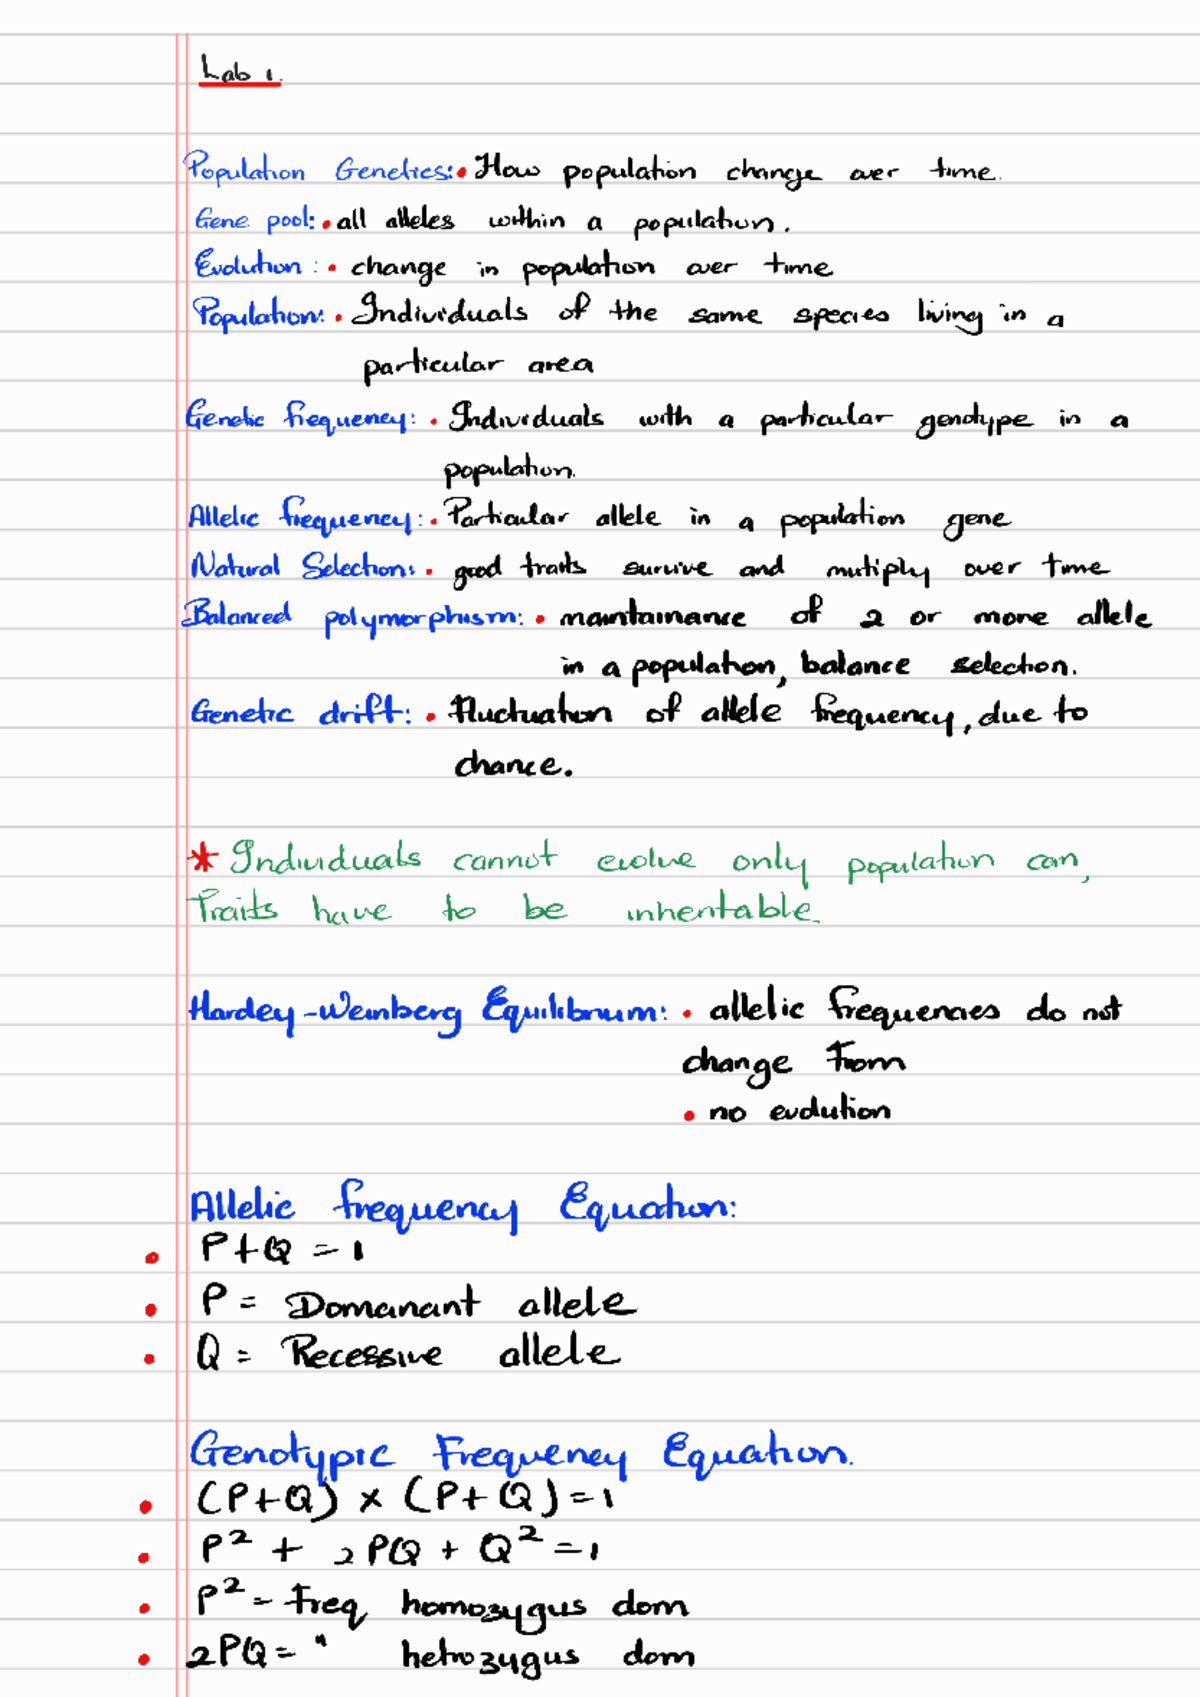 Lab 1.
Population Genetics: • How population change over time.
Gene pool: • all alleles within a population.
Evolution: • change in population over time
Population: • Individuals of the same species living in a
particular area
Genetic frequency: • Individuals with a particular genotype in a
population.
Allelic frequency: • Particular allele in a population gene
Natural Selection: • good traits survive and mutiply over time
Balanced polymorphism: • maintainance of 2 or more allele
in a population, balance selection.
Genetic drift: • fluctuation of allele frequency, due to
chance.
* Individuals cannot evolve only population can,
Traits have to be inheritable.
Hardey-Weinberg Equilibrium: • allelic frequencies do not
change from
• no evolution
Allelic frequency Equation:
• P+Q = 1
• P = Domanant allele
• Q = Recessive allele
Genotypic Frequency Equation.
• (P+Q) x (P+Q) = 1
• P² + 2PQ + Q² = 1
• P² = freq homozygus dom
• 2PQ = " hetrozygus dom